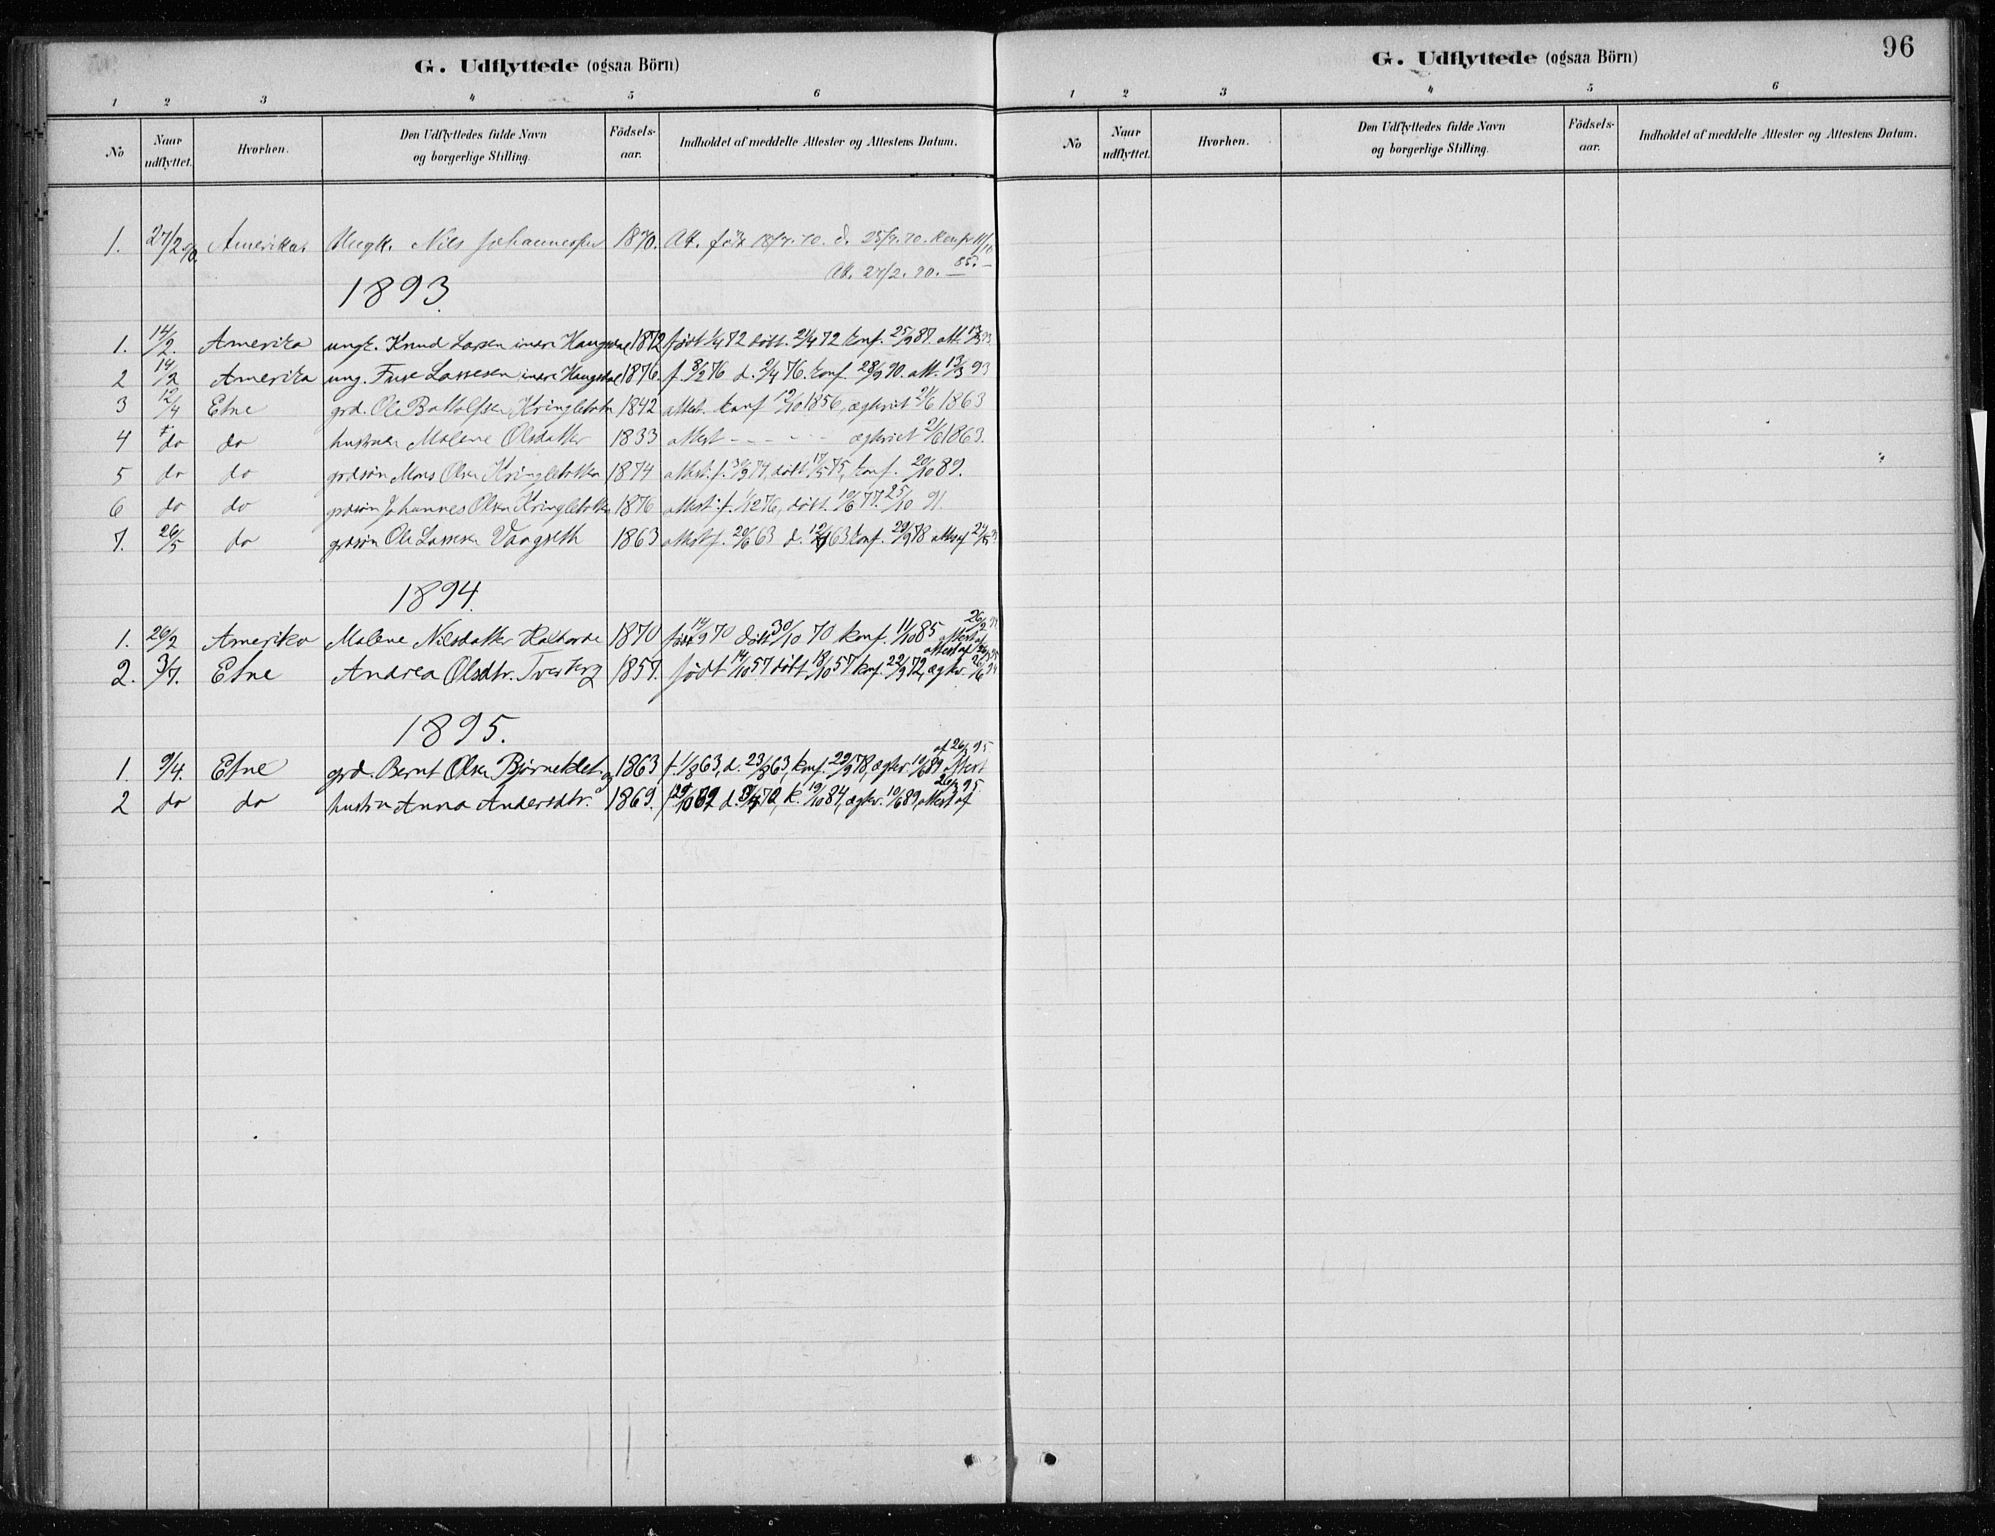 G. Udflyttede (ogsaa Börn)
1 2 3 4 5 6
No Naar udflyttet. Hvorhen. Den Udflyttedes fulde Navn og borgerlige Stilling. Födsels-aar. Indholdet af meddelte Attester og Attestens Datum.
1. 27/2 90. Amerika Ungk. Nils Johannessen 1870. Att. født 18/9.70. d. 25/9.70. Konf. 11/10
85.
Att. 27/2.90.
1893.
1. 14/2. Amerika ungk. Knud Larsen indre Haugsdal 1872 født 1/4 72 døbt. 21/4 72 konf. 25/9 87. att. 13/2 93
2 14/2 Amerika ung. Lassesen indre Haugsdal 1876. f. 8/2 76 d. 2/4 76. konf. 28/9 90. att. 13/3 93
3 12/4 Etne grd. Ole Kringlebotn 1842 attest. konf 12/10 1856, ægteviet 21/6 1863
4 do do hustruen Malene Olsdatter 1833 attest - - - - - ægteviet 21/6 1863.
5 do do grdsøn Mons Olsen Kringlebotten 1874 attest. f. 30/9 74, døbt 17/5 75, konf. 20/10 89.
6 do do grdsøn Johannes Olsen Kringlebotten 1876 attest: f. 1/12 76, døbt. 10/6 77. 25/10 91.
7. 26/5 do grdsøn Ole Lassesen Vaagseth 1863 attest f. 20/6 63 d. 12/7 63 konf. 29/9 78 attest af
1894.
1. 26/2 Amerika Malene Nilsdatter 1870 født 14/9 70 døbt 30/10 70 konf. 11/10 85 attest af 26/2
2. 3/7. Etne Andrea Olsdtr. Tvesterg 1857. født 14/10 57 døbt, 18/10 57 konf. 22/9 72, ægtev. attest af
1895.
1. 9/4. Etne grd. Bernt Olsen Bjørneklet og 1863 f. 1/8 63, d. 23/8 63, konf. 29/9 78, ægtev. 10/6 89 attest af 26/3 95
2 do do hustru Anna Andersdtr. 1869. f. 29/10 69 d. k. 19/10 84, ægtev. 10/6 89, attest af 26/3 95.
G. Udflyttede (ogsaa Börn)
96
1 2 3 4 5 6
No Naar udflyttet. Hvorhen. Den Udflyttedes fulde Navn og borgerlige Stilling. Födsels-aar. Indholdet af meddelte Attester og Attestens Datum.